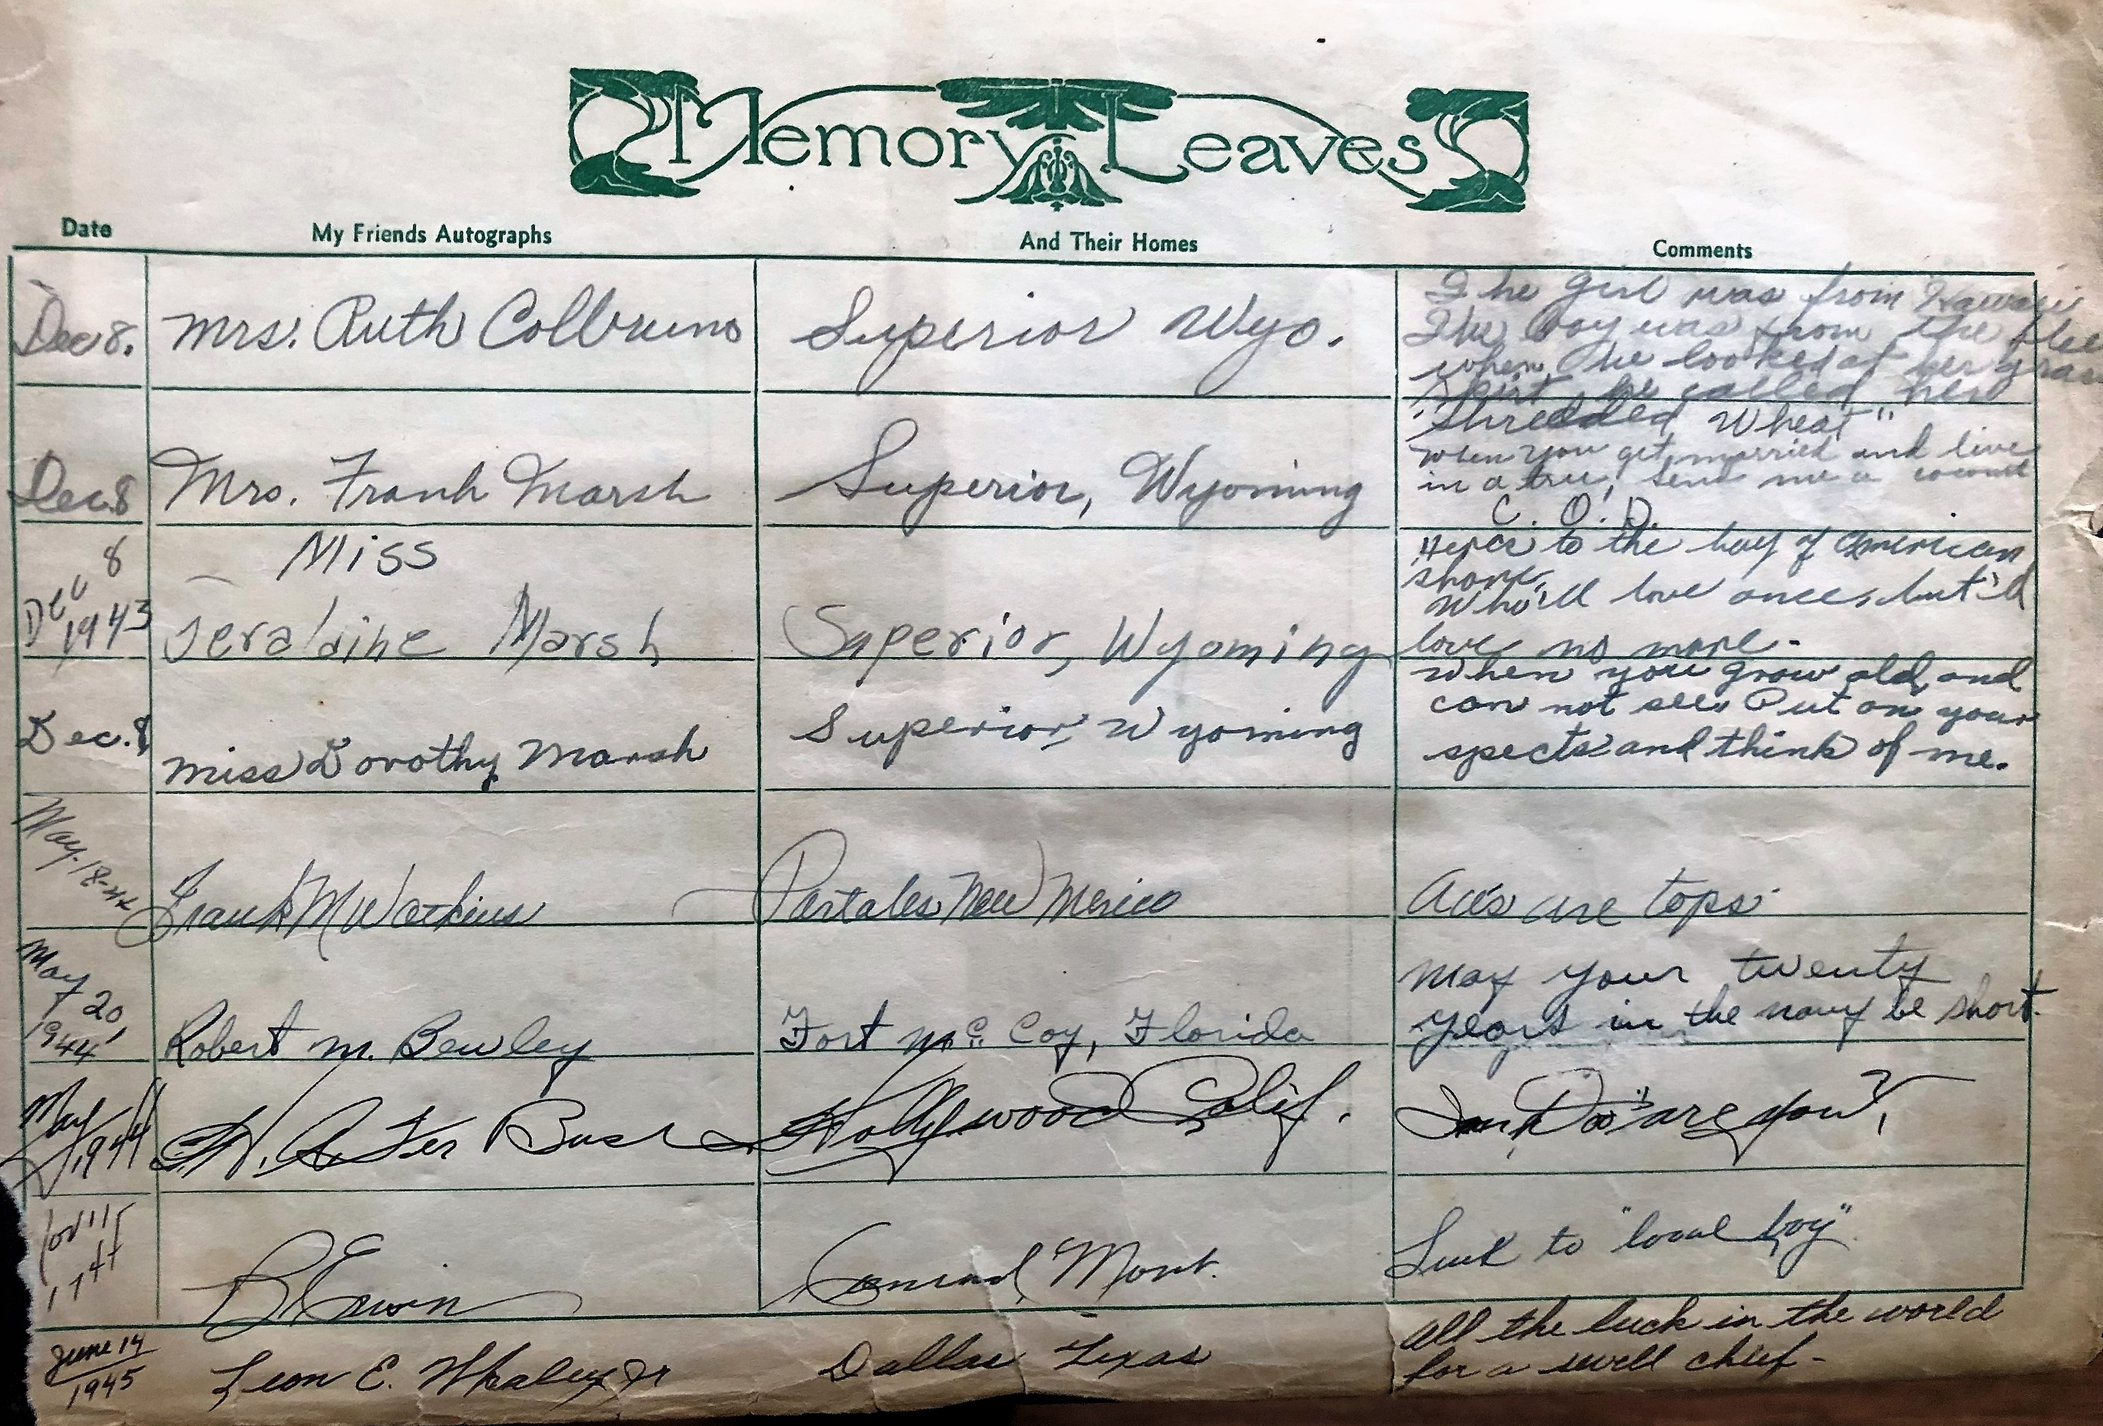 Memory Leaves
Date My Friends Autographs And Their Homes Comments
Dec 8. Mrs. Ruth Colbruno Superior Wyo.
The girl was from Hawaii
The boy was from the
when he looked at her grass
skirt he called her
"Shredded Wheat"
Dec. 8 Mrs. Frank Marsh Superior, Wyoming
when you get married and live
in a tree, send me a coconut
C. O. D.
Dec 8 1943 Miss
Jeraldine Marsh Superior, Wyoming
to the boy of American
shore,
Who'll love once, but'd
love no more.
Dec. 8, Miss Dorothy Marsh Superior, Wyoming
When you grow old and
can not see, Put on your
spects and think of me.
May. 18-44 Frank M Watkins Portales New Mexico are tops.
May 20, 1944 Robert M. Bewley Fort McCoy, Florida
May your twenty
years in the navy be short.
May 1944 Bush Hollywood Calif. are you?
Erwin Conrad, Mont. Luck to "local boy"
June 14
1945
Leon E. Whaley Jr Dallas Texas
All the luck in the world
for a swell chief-